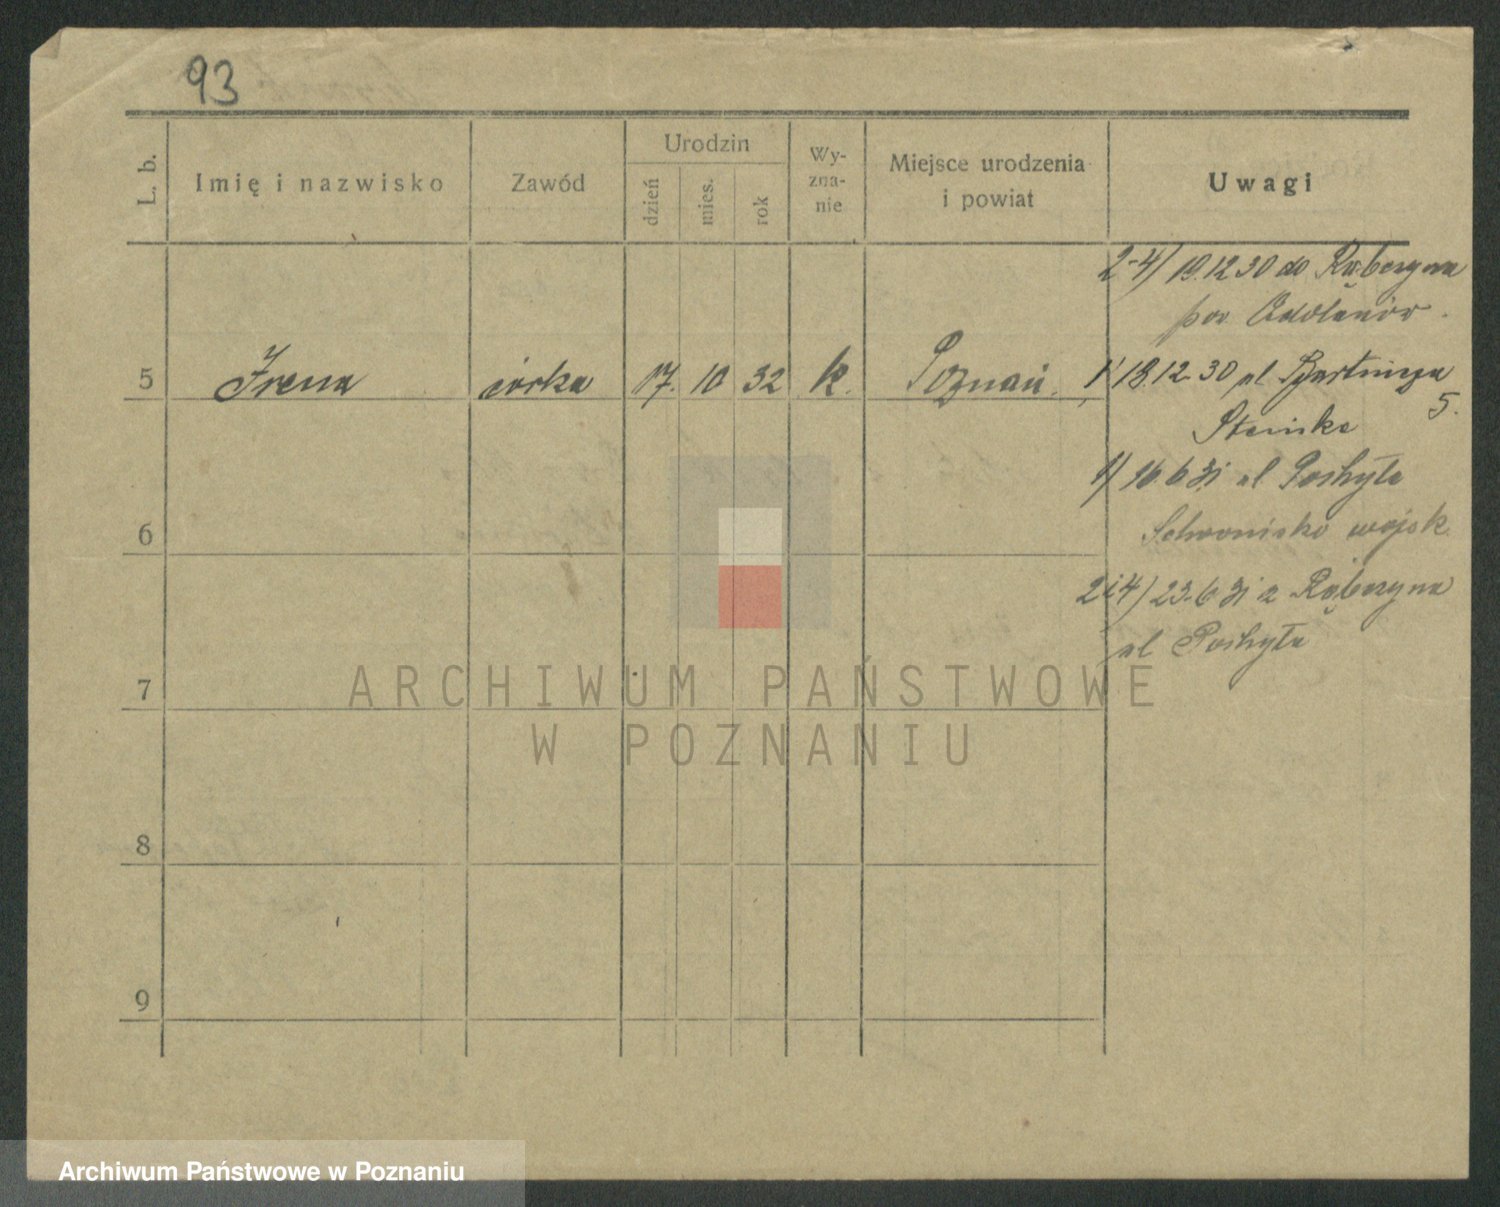 93
L. b.
Imię i nazwisko
Zawód
Urodzin
dzień
mies.
rok
Wy-
zna-
nie
Miejsce urodzenia
i powiat
Uwagi
2-4) 19.12 30 do Rąbczyna
pow Odolanów.
5 Irena córka 17. 10 32 k. Poznań.
1) 18.12.30 ul
5.
1) 16.6 31 ul Pochyła
Schronisko wojsk.
6
2 i 4) 23.6 31 z Rąbczyna
ul Pochyła
7
8
9
ARCHIWUM PAŃSTWOWE
W POZNANIU
Archiwum Państwowe w Poznaniu